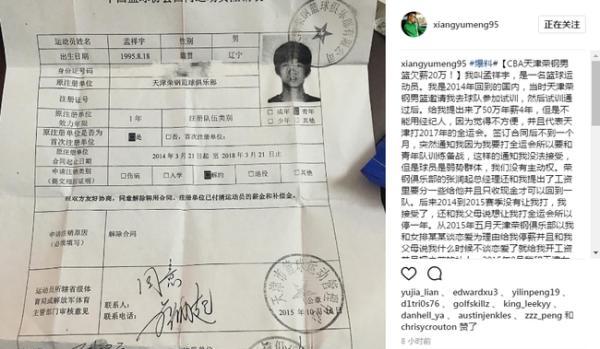 运动员姓名
孟祥宇
性别
男
出生日期
1995.8.18
籍贯
辽宁
身份证号码
原注册单位
天津荣钢篮球俱乐部
注册证号
成年
青年
少年
其他
原注册单位
效力年限
1年
注册队伍类别
原注册单位是否为
首次注册单位
是
否:首次注册单位
原注册单位
合同起止日期
2014年3月21日起 至 2018年3月21日止
申请注销类别
(提交相应证明)
伤病
入学
解约
退役
其他
经双方友好协商,同意解除聘用合同,注册单位已付清运动员的薪金和补偿金。
申请注销原因
(必须填写)
解除合同
运动员所辖省级体
育局或解放军体育
主管部门审核意见
联系人:
联系电话:
公章
2015年10月
xiangyumeng95
正在关注
xiangyumeng95 #爆料#【CBA天津荣钢男
篮欠薪20万!】我叫孟祥宇,是一名篮球运
动员。我是2014年回到的国内,当时天津
荣钢男篮邀请我去球队参加试训,然后试训通
过后,给我提出来了50万年薪4年,但是不
能用经纪人,因为觉得不方便,并且代表天
津打2017年的全运会。签订合同后不到一个
月,突然通知我因为要打全运会所以要和
青年队训练备战,这样的通知我没法接受,
但是球员是弱势群体,我们没有主动权。荣
钢俱乐部的张润起总经理还和我提出了工资
要分一些给他并且只收现金才可以回到一
队。后来2014到2015赛季没有让我打,我
接受了,还和我父母说想让我打全运会所以
停一年。从2015年五月天津荣钢俱乐部以我
和女排某某谈恋爱为理由给我停薪并且和我
父母说我什么时候不谈恋爱了就给我开工资
yujia_lian、edwardxu3、yilinpeng19、
d1tri0s76、golfskillz、king_leekyy、
danhell_ya、austinjenkles、zzz_peng 和
chrisycrouton 赞了
8 小时前